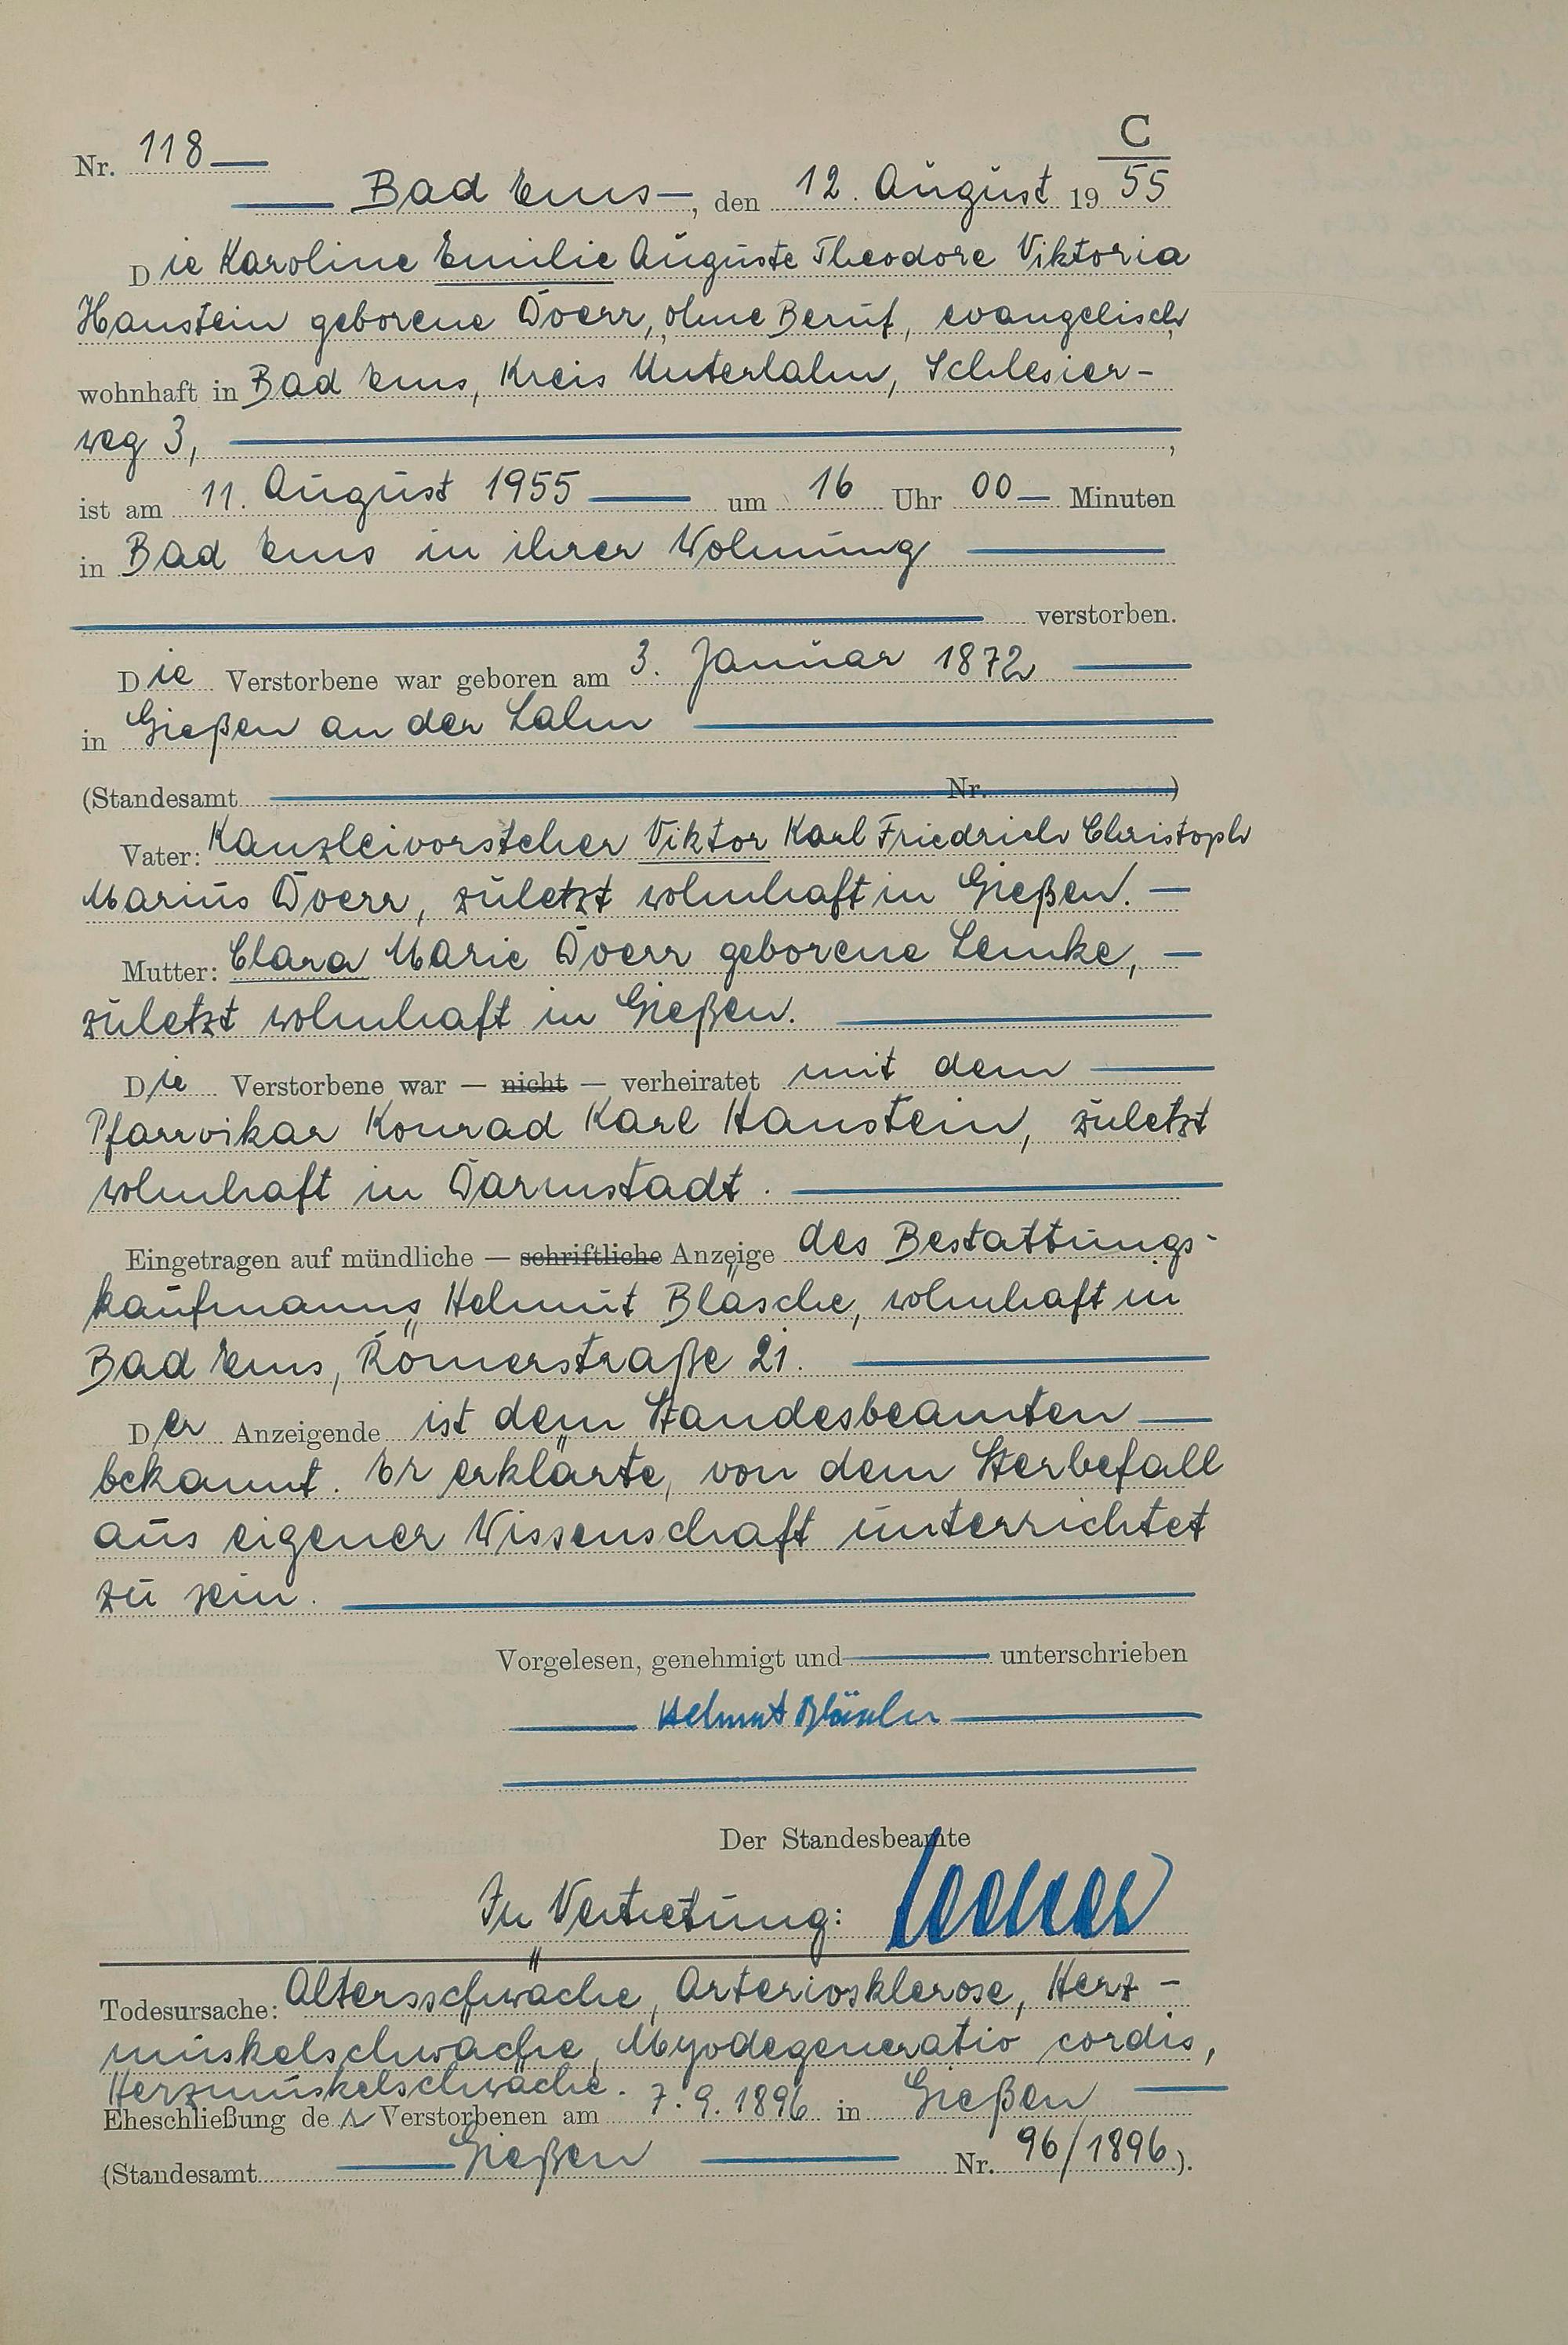 C
Nr. 118
Bad Ems, den 12. August 19 55
Die Karoline Emilie Auguste Theodore Viktoria
Haustein geborene Doerr, ohne Beruf, evangelisch
wohnhaft in Bad Ems, Kreis Unterlahn, Schlesier-
weg 3, ,
ist am 11. August 1955 um 16 Uhr 00 Minuten
in Bad Ems in ihrer Wohnung
verstorben.
Die Verstorbene war geboren am 3. Januar 1872
in Gießen an der Lahn
(Standesamt Nr. )
Vater: Kanzleivorsteher Viktor Karl Friedrich Christoph
Marius Doerr, zuletzt wohnhaft in Gießen. —
Mutter: Clara Marie Doerr geborene Lemke, —
zuletzt wohnhaft in Gießen.
Die Verstorbene war — nicht — verheiratet mit dem
Pfarrvikar Konrad Karl Haustein, zuletzt
wohnhaft in Darmstadt.
Eingetragen auf mündliche — schriftliche Anzeige des Bestattungs-
kaufmanns Helmut Bläsche, wohnhaft in
Bad Ems, Römerstraße 21.
Der Anzeigende ist dem Standesbeamten
bekannt. Er erklärte, von dem Sterbefall
aus eigener Wissenschaft unterrichtet
zu sein.
Vorgelesen, genehmigt und unterschrieben
Helmut Bläsche
Der Standesbeamte
In Vertretung:
Todesursache: Altersschwäche, Arteriosklerose, Herz-
muskelschwäche, Myodegeneratio cordis,
Herzmuskelschwäche.
Eheschließung der Verstorbenen am 7.9.1896 in Gießen
(Standesamt Gießen Nr. 96/1896).